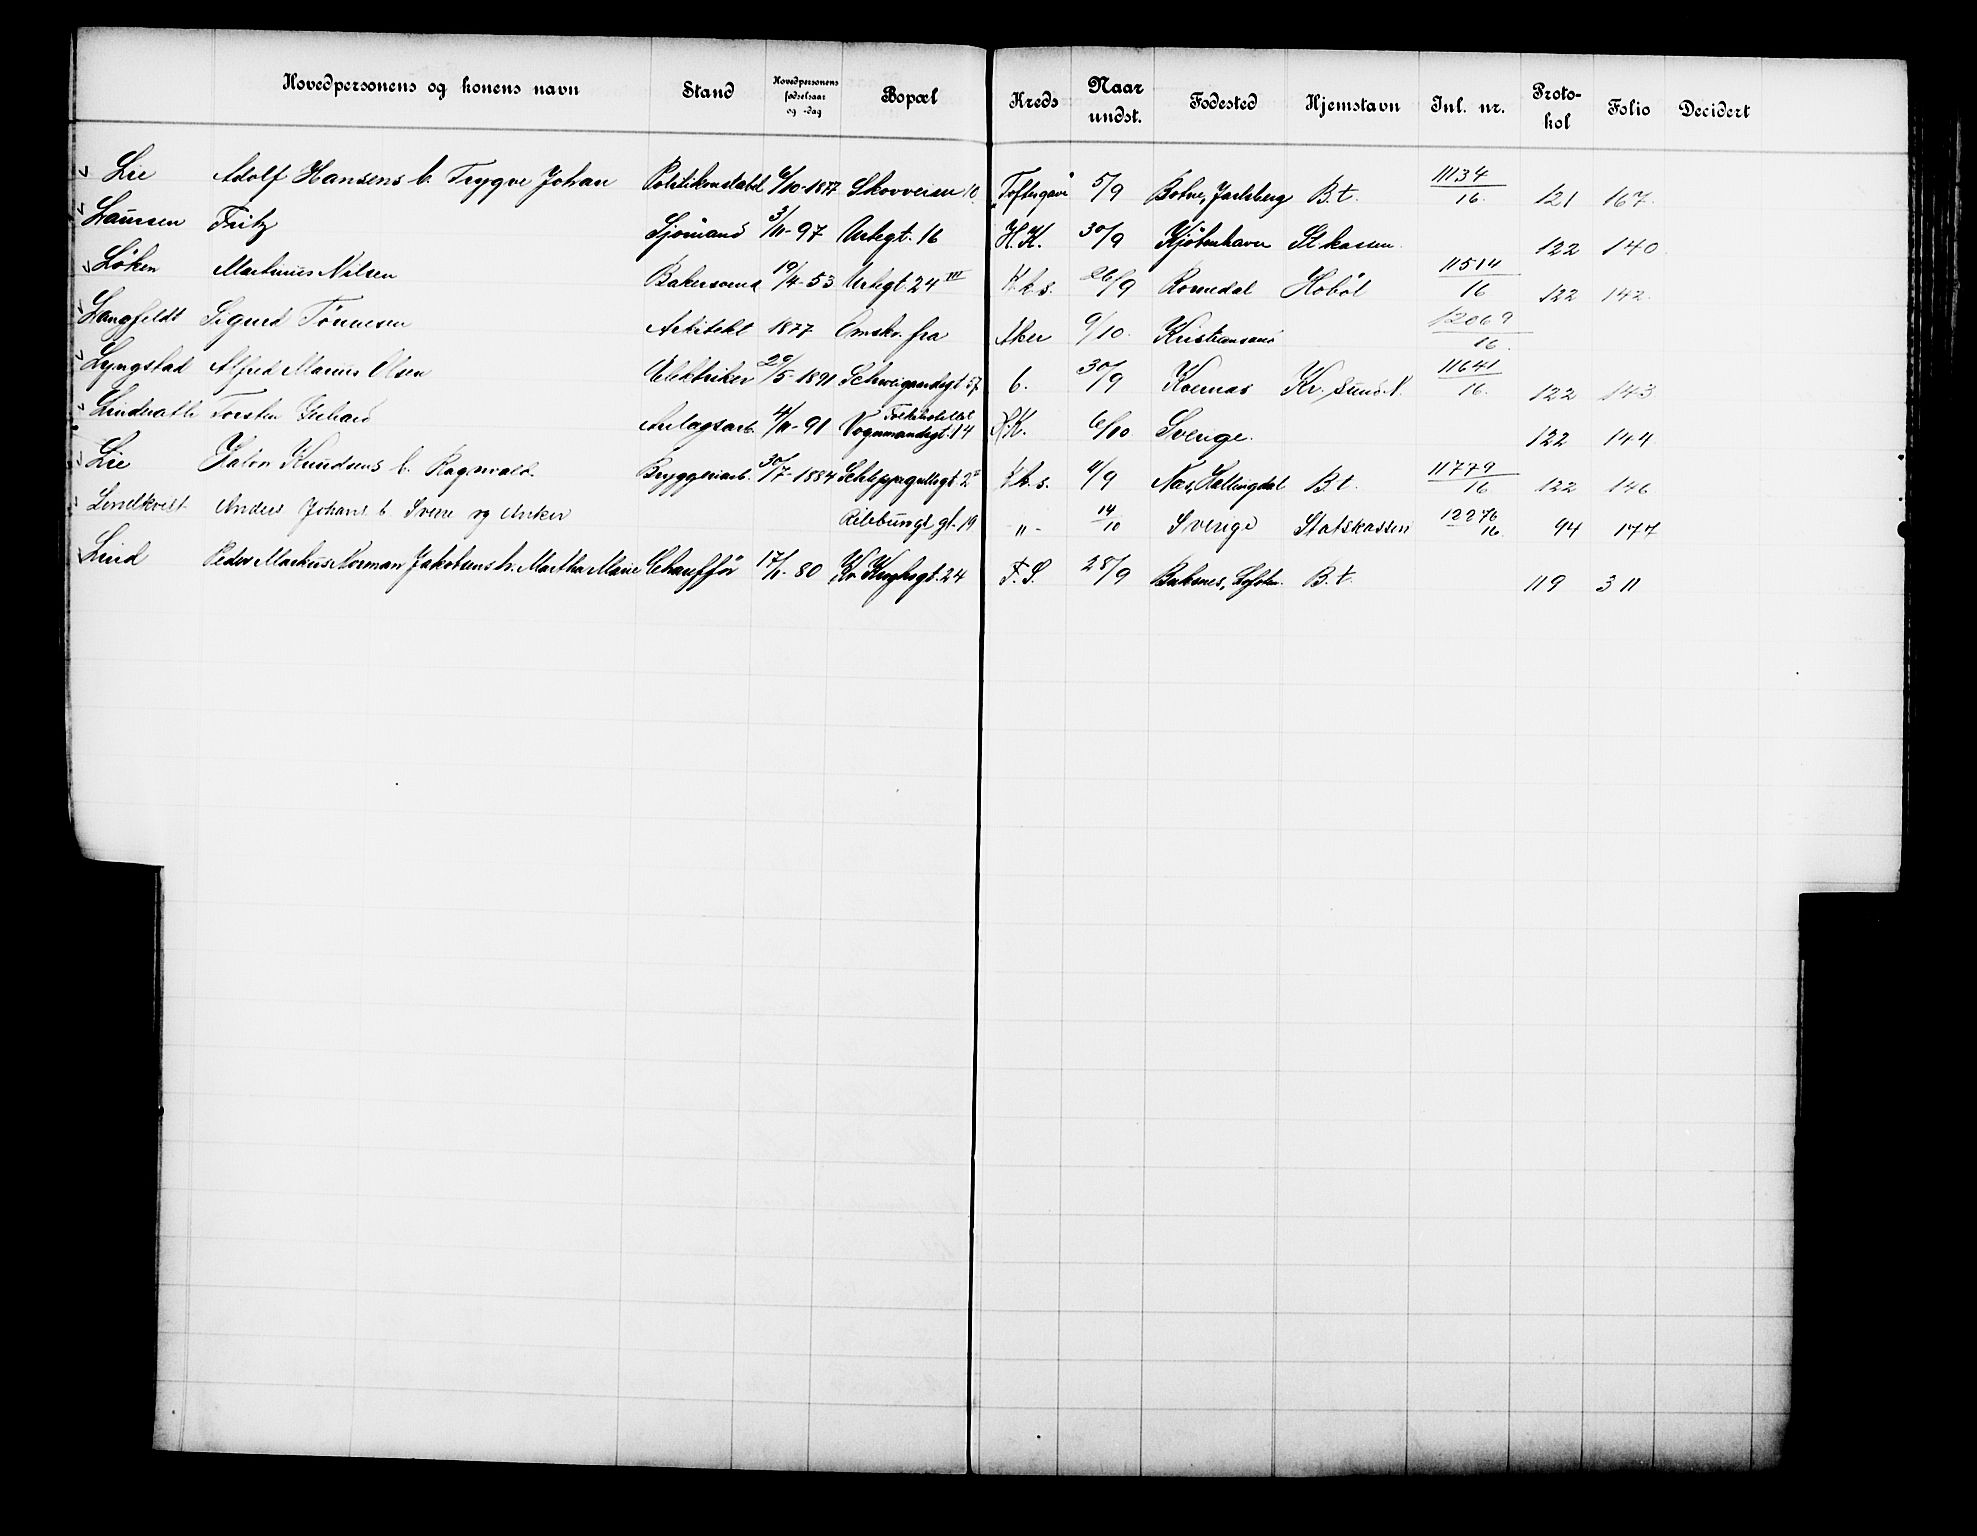 Hovedpersonens og konens navn Stand Hovedpersonens fødselsaar og -dag Bopæl Kreds Naar undst. Fødested Hjemstavn Inl. nr. Proto-kol Folio Decidert
Lie Adolf Hansens b. Trygve Johan Politikonstabel 6/10-1877 Skovveien 10 Toftesgave 5/9 Botne, Jarlsberg B.t. 11134/16 121 167
Laursen Fritz Sjømand 3/11-97 Urtegt. 16 H.K. 30/9 Kjøbenhavn St. kassen 122 140
Løken Martinius Nilsen Bakersvend 19/4-53 Urtegt 24 III K.k.s. 26/9 Romedal Hobøl 11514/16 122 142
Langfeldt Sigurd Tønnesen Arkitekt 1877 Omskr. fra Aker 9/10 Kristianssand 12069/16
Lyngstad Alfred Marius Olsen Elektriker 29/5-1891 Schweigaardsgt 57 6. 30/9 Kvernæs Kr.sund N. 11641/16 122 143
Torsten Gerhard Anlagsarb. 4/11-91 Folkehotellet Vognmandsgt. 14 H.K. 6/10 Sverige 122 144
Lie Knudsens b. Ragnvald Bryggeriarb. 30/7-1884 Schleppegrellsgt 2 K.k.s. 11/9 Nes, Hallingdal B.t. 11779/16 122 146
Lindkvist Anders Johans b. Sverre og Anker Rilebungs gt. 19 " - 14/10 Sverige Statskassen 12276/16 94 177
Lind Peder Markus Norman Jakobsens h. Martha Marie Chauffør 17/1-80 Kr. Kroghsgt. 24 F.S. 28/9 Buksnes, Lofoten B.t. 119 311